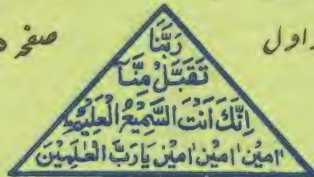 اول
صفحہ
رَبَّنَا
تَقَبَّلْ مِنَّا
اِنَّكَ اَنْتَ السَّمِیْعُ الْعَلِیْمُ
اٰمِیْنْ اٰمِیْنْ اٰمِیْنْ یَارَبَّ الْعٰلَمِیْنَ